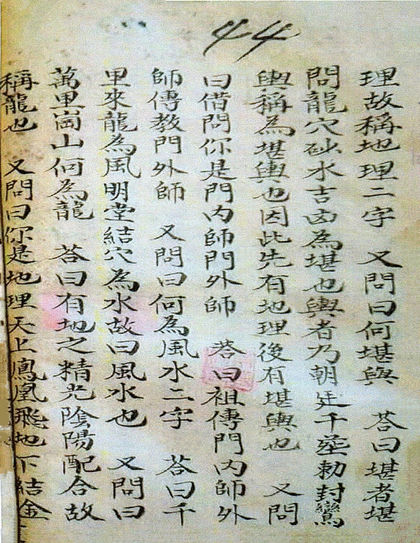 44
理故稱地理二字 又問曰何堪輿 答曰堪者堪
問龍穴砂水吉凶為堪也輿者乃朝廷千勅封鸞
輿稱為堪輿也因此先有地理後有堪輿也 又問
曰借問你是門內師門外師 答曰祖傳門內師外
師傳教門外師 又問曰何為風水二字 答曰千
里來龍為風明堂結穴為水故曰風水也 又問曰
萬里崗山何為龍 答曰有地之精光陰陽配合故
稱龍也 又問曰你是地理天上鳳凰飛地下結金